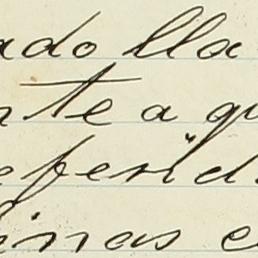 ado lla
nte a qu
eferid
inas e